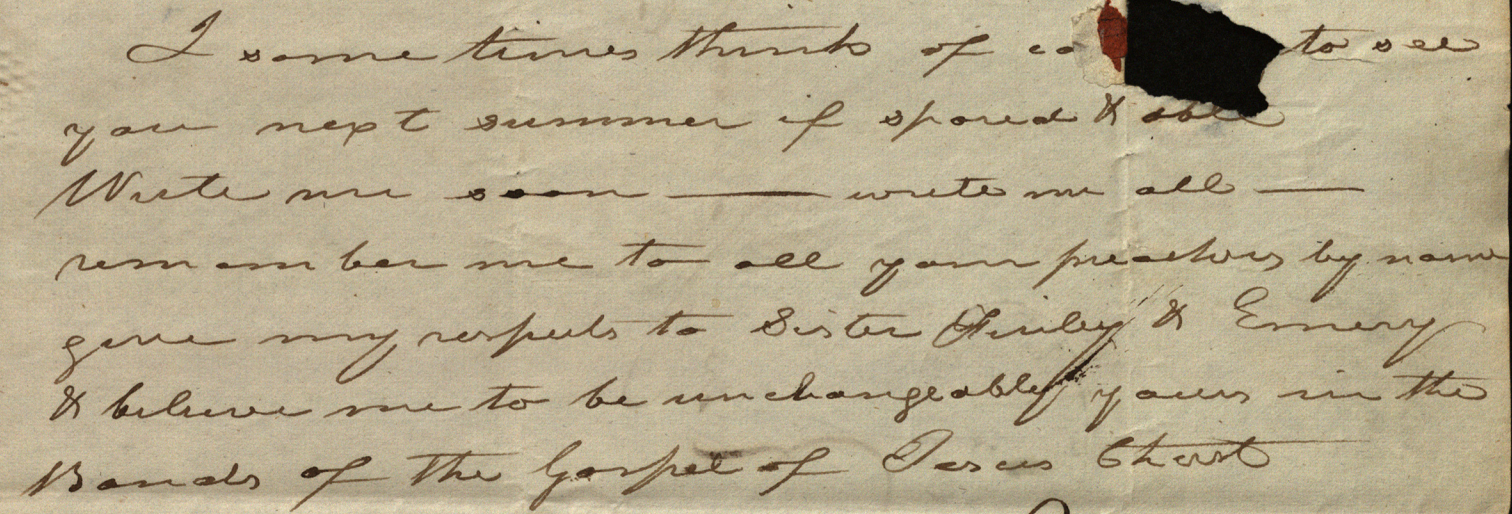 I some times think of co to see
you next summer if spared & able
Write me soon — write me all —
remember me to all your preachers by name
give my respects to Sister Finley & Emery
& believe me to be unchangeably yours in the
Bonds of the Gospel of Jesus Christ